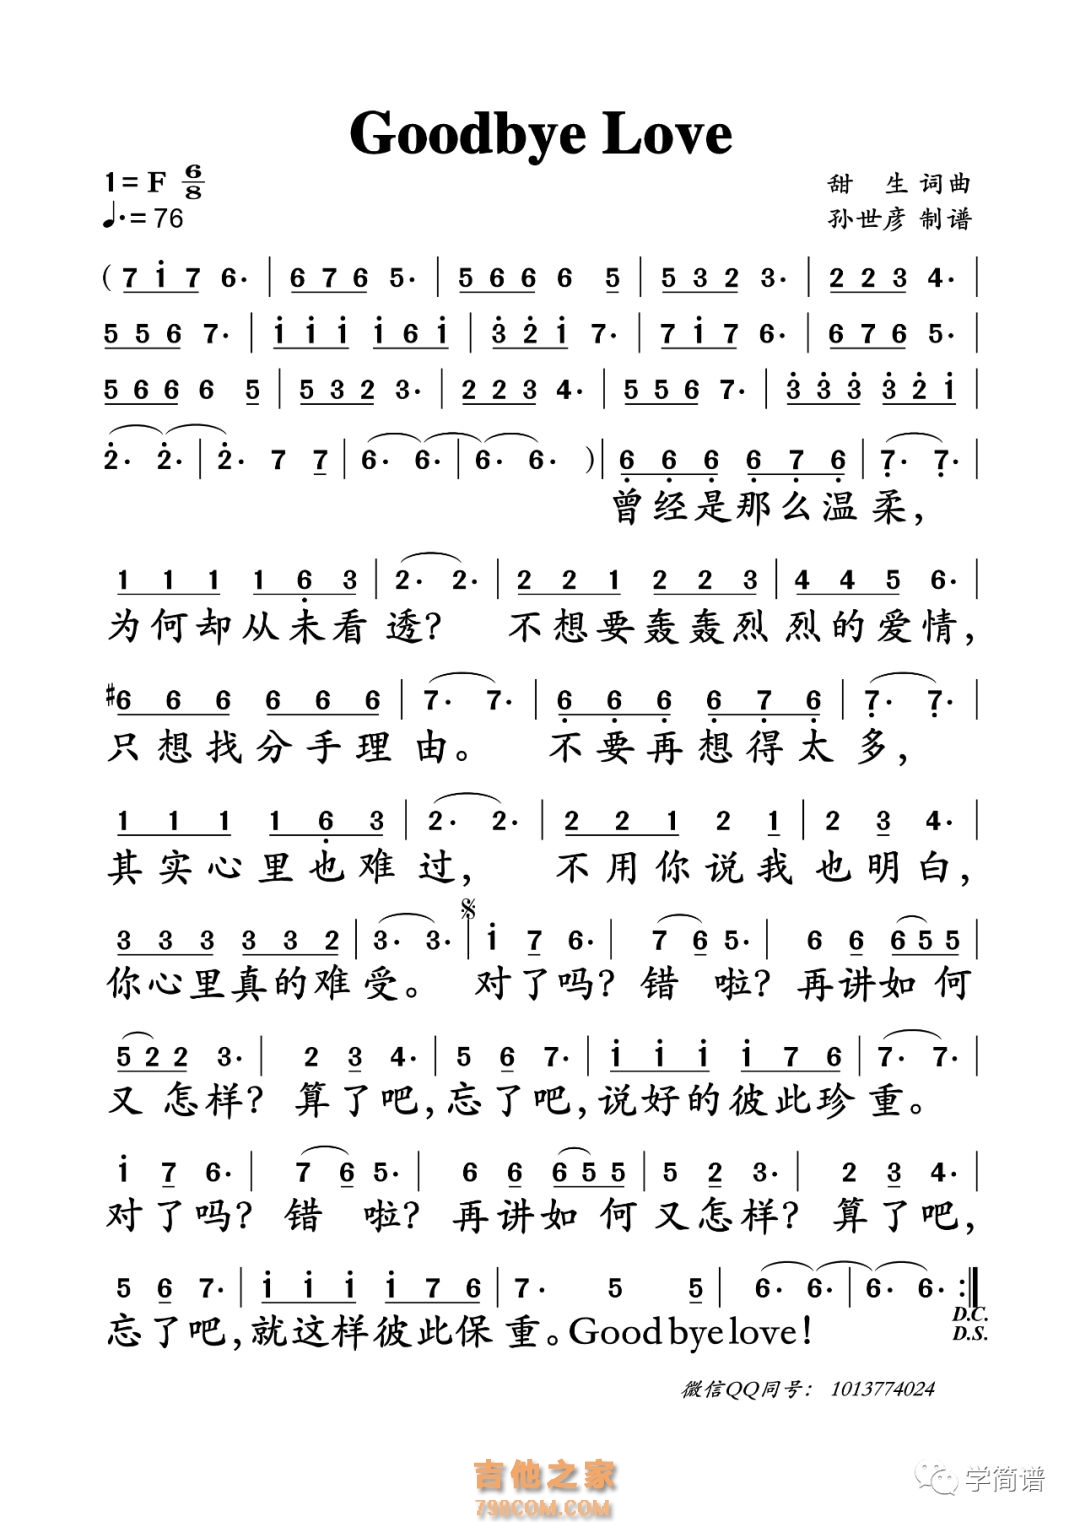 Goodbye Love
1= F 6/8
♩.= 76
甜 生 词曲
孙世彦 制谱
( 7 i 7 6. | 6 7 6 5. | 5 6 6 6 5 | 5 3 2 3. | 2 2 3 4. |
5 5 6 7. | i i i i 6 i | 3̇ 2̇ i 7. | 7 i 7 6. | 6 7 6 5. |
5 6 6 6 5 | 5 3 2 3. | 2 2 3 4. | 5 5 6 7. | 3̇ 3̇ 3̇ 3̇ 2̇ i |
2̇. 2̇. | 2̇. 7 7 | 6. 6. | 6. 6. ) | 6̣ 6̣ 6̣ 6̣ 7̣ 6̣ | 7̣. 7̣. |
曾经是那么温柔，
1 1 1 1 6̣ 3 | 2. 2. | 2 2 1 2 2 3 | 4 4 5 6. |
为何却从未看透？ 不想要轰轰烈烈的爱情，
#6 6 6 6 6 6 | 7. 7. | 6̣ 6̣ 6̣ 6̣ 7̣ 6̣ | 7̣. 7̣. |
只想找分手理由。 不要再想得太多，
1 1 1 1 6̣ 3 | 2. 2. | 2 2 1 2 1 | 2 3 4. |
其实心里也难过， 不用你说我也明白，
3 3 3 3 3 2 | 3. 3. | 𝄋 i 7 6. | 7 6 5. | 6 6 6 5 5 |
你心里真的难受。 对了吗？错 啦？再讲如何
5 2 2 3. | 2 3 4. | 5 6 7. | i i i i 7 6 | 7. 7. |
又怎样？算了吧，忘了吧，说好的彼此珍重。
i 7 6. | 7 6 5. | 6 6 6 5 5 | 5 2 3. | 2 3 4. |
对了吗？错 啦？再讲如何又怎样？算了吧，
5 6 7. | i i i i 7 6 | 7. 5 5 | 6. 6. | 6. 6. :‖
忘了吧，就这样彼此保重。Good bye love！
D.C.
D.S.
微信QQ同号： 1013774024
吉他之家
798COM.COM
学简谱